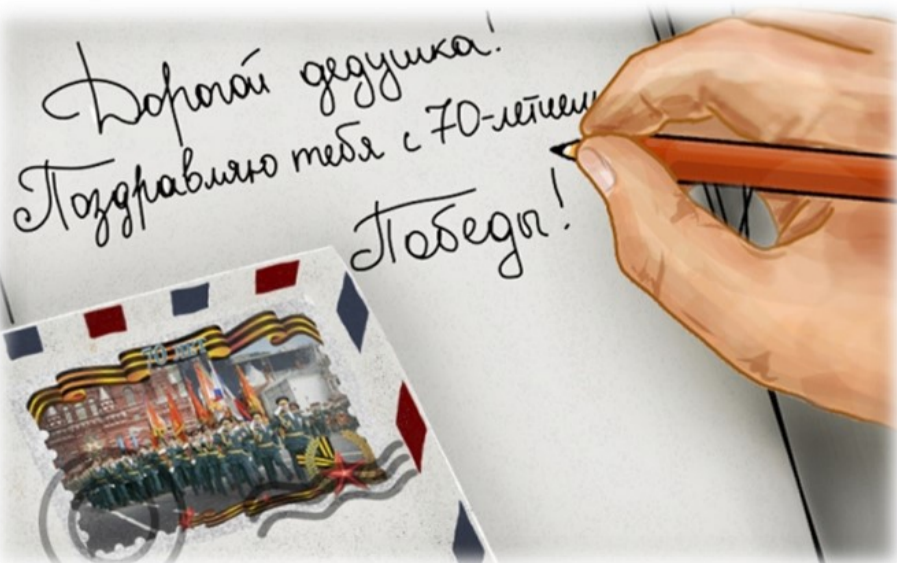 Дорогой дедушка!
Поздравляю тебя с 70-летием
Победы!
70 ЛЕТ